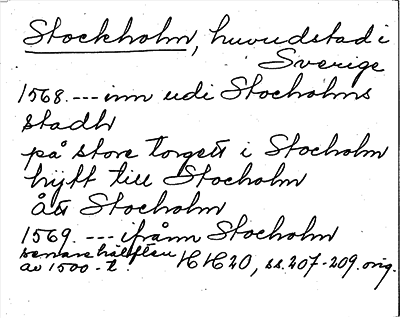 Stockholm, huvudstad i
Sverige
1568. --- inn udi Stocholms
stadh
på store torgett i Stocholm
hijtt till Stocholm
ått Stocholm
1569. --- ifrånn Stocholm
senare hälften
av 1500-t. HH20, ss. 207-209. orig.